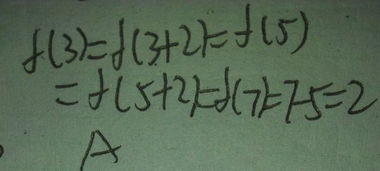 f(3)=f(3+2)=f(5)
=f(5+2)=f(7)=7-5=2
A